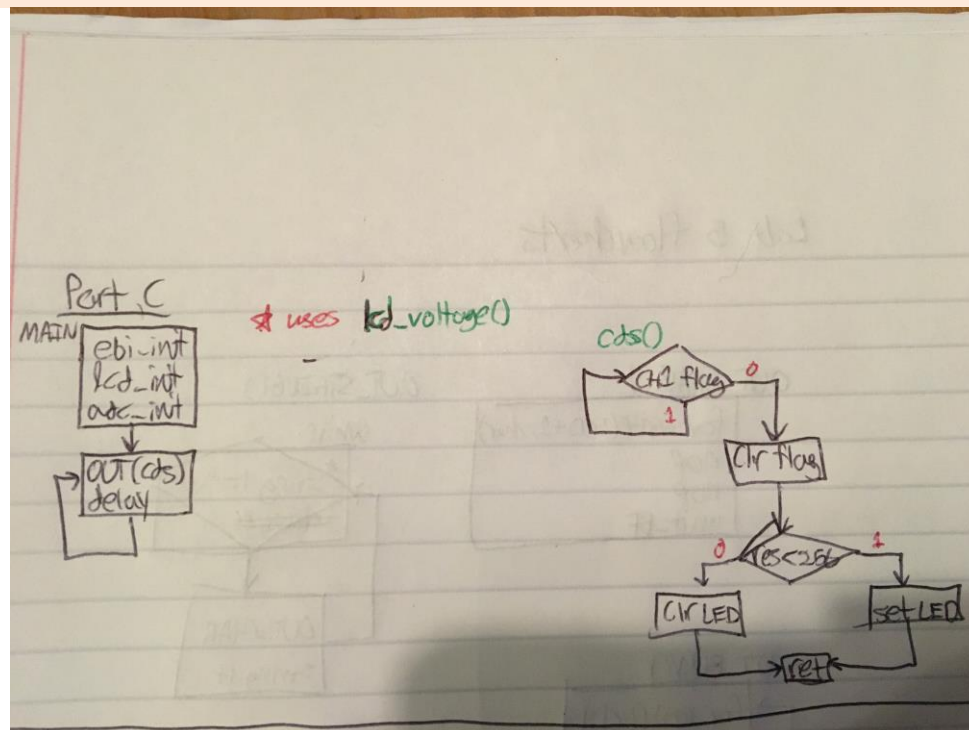 Part C
MAIN
ebi_int
lcd_int
adc_int
OUT(cds)
delay
* uses lcd_voltage()
cds()
CH1 flag
0
1
Clr flag
res<256
0
1
Clr LED
set LED
ret